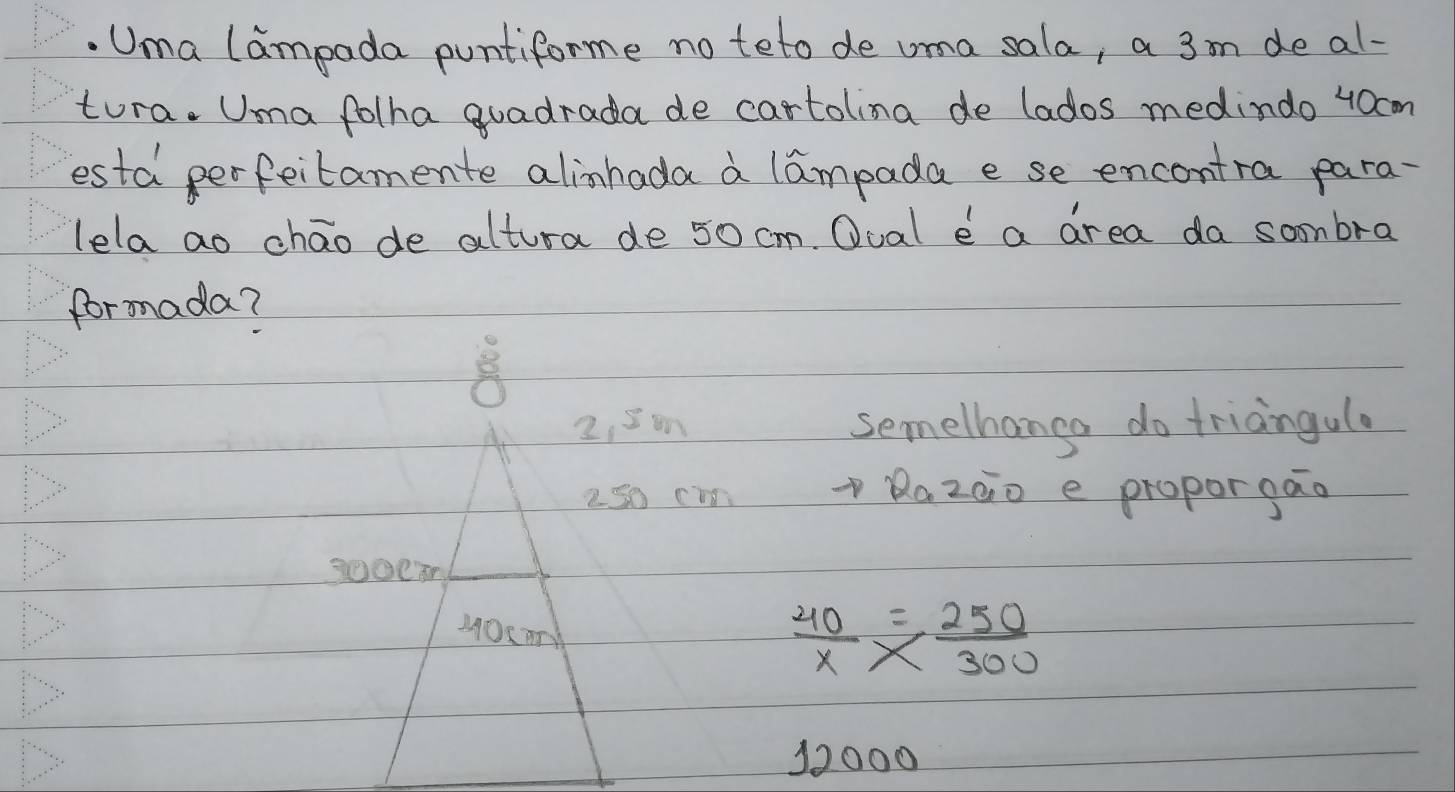 . Uma lâmpada puntiforme no teto de uma sala, a 3m de al-
tura. Uma folha quadrada de cartolina de lados medindo 40cm
está perfeitamente alinhada à lâmpada e se encontra para-
lela ao chão de altura de 50 cm. Qual é a área da sombra
formada?
2,5m
semelhança do triângulo
250 cm
→ Razão e proporção
300cm
40cm
40/x = 250/300
12000